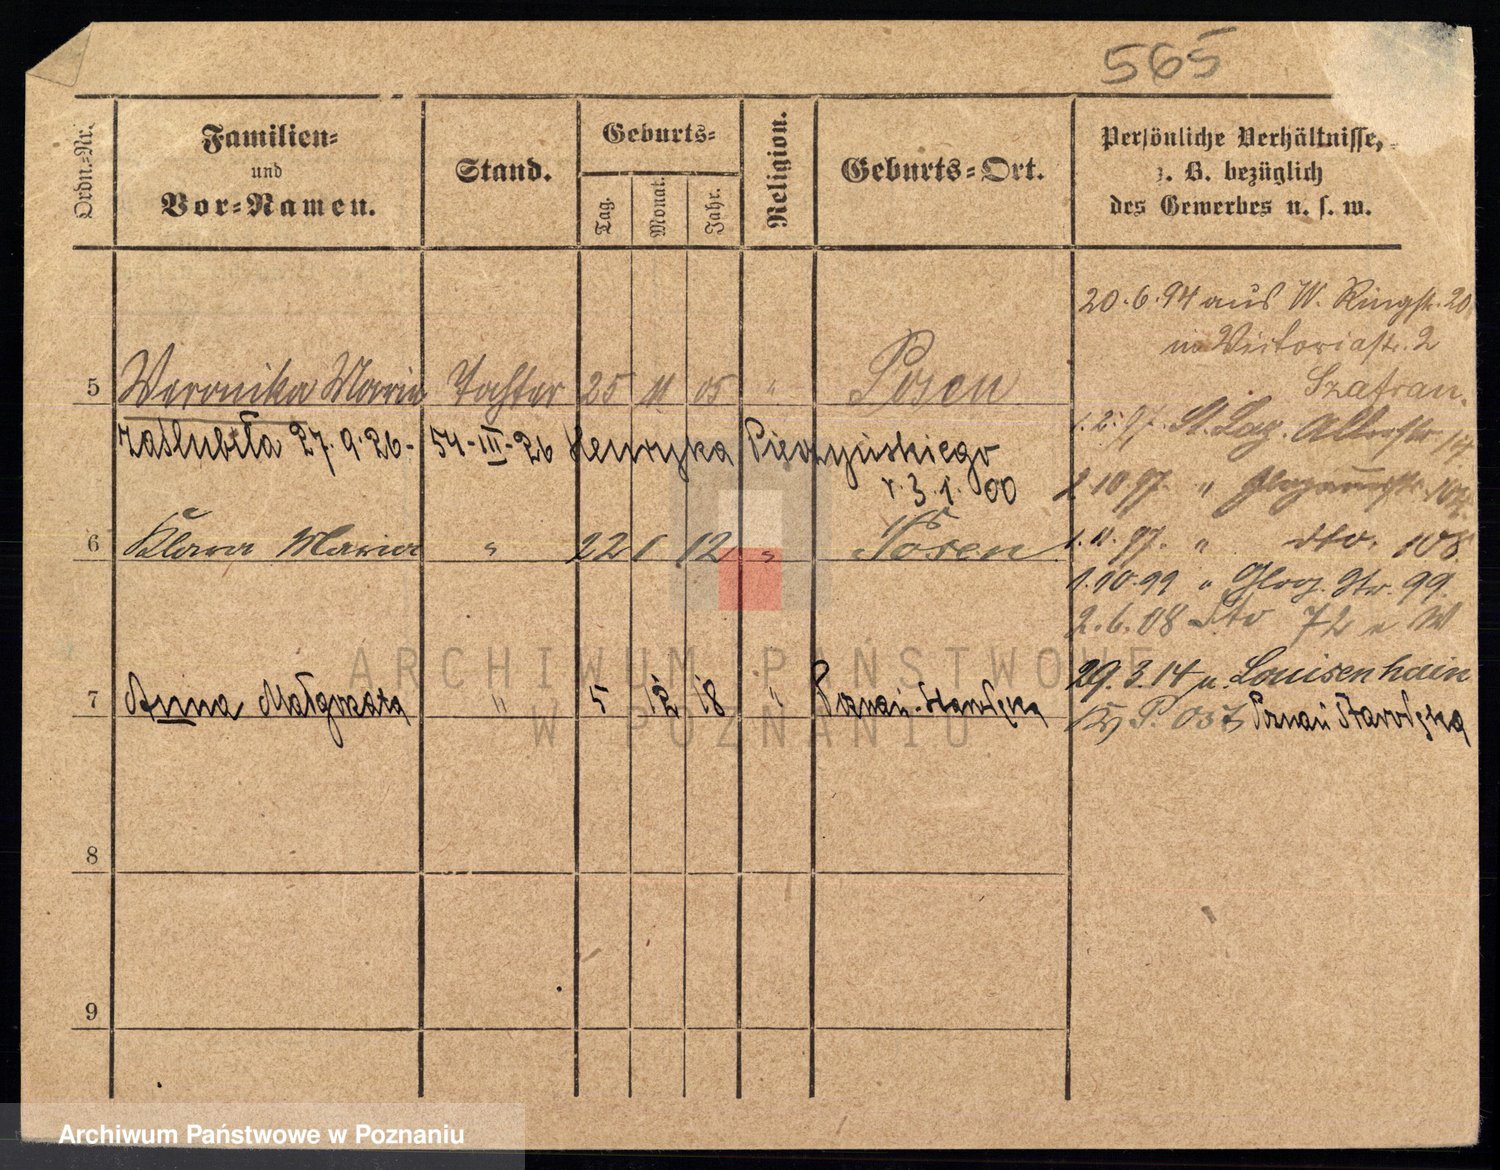 565
Ordn.-Nr.
Familien-
und
Vor-Namen.
Stand.
Geburts-
Tag.
Monat.
Jahr.
Religion.
Geburts-Ort.
Persönliche Verhältnisse,
z. B. bezüglich
des Gewerbes u. s. w.
20.6.94 aus W. Ringstr. 20
Victoriastr. 2
Szafran.
5 Weronika Maria Tochter 25 11 05 " Posen
1.2.97. St. Laz.
zaślubiła 27.9.26 - 54-III-26 Henryka
r. 3.1.00
2.10.97. "
6 Klara Maria " 22 1 12 " Posen
1.11.97. " dto. 108
1.10.99 " Glog. Str. 99.
2.6.08 dto 72 W
29.3.14 n. Louisenhain
7 Anna Małgorzata " 5 12 18 " Poznań-Starołęka
Poznań Starołęka
8
9
ARCHIWUM PAŃSTWOWE
W POZNANIU
Archiwum Państwowe w Poznaniu